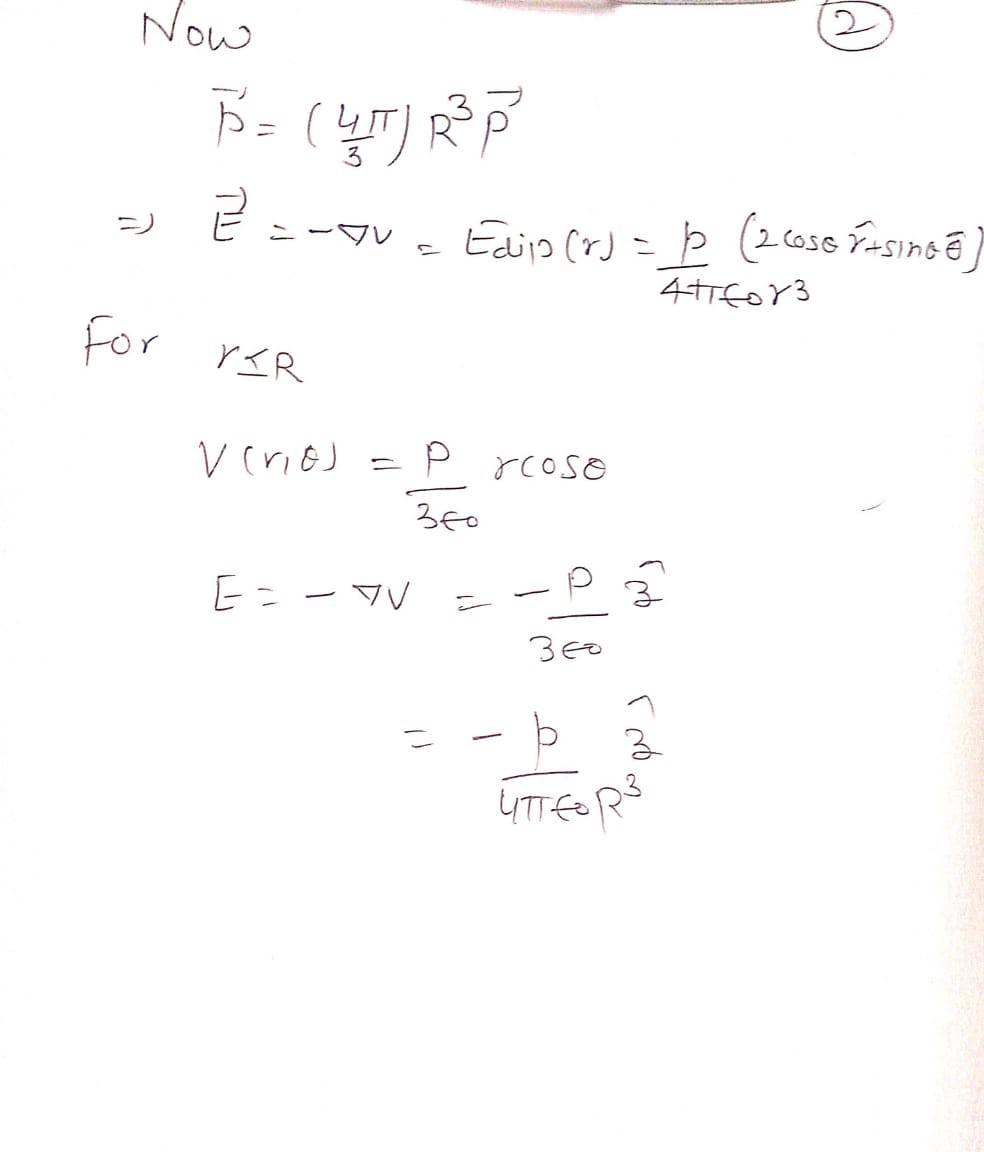 Now
②
p⃗ = (4π/3) R³ P⃗
⇒ E⃗ = -∇V = Edip (r) = p/4πϵ0r3 (2cosθ r̂+sinθ θ̄)
For r≤R
V(r,θ) = P/3ϵ0 rcosθ
E = -∇V = -P/3ϵ0 ẑ
= -p/4πϵ0R³ ẑ